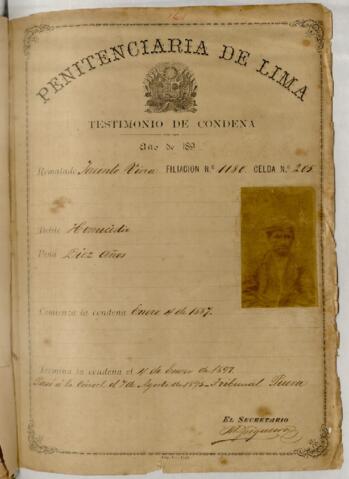 PENITENCIARIA DE LIMA
TESTIMONIO DE CONDENA
Año de 189
Rematado Jacinto Viera FILIACION N.º 1180 CELDA N.º 205
Delito Homicidio
Pena Diez años
Comienza la condena Enero 4 de 1887.
Termina la condena el 4 de Enero de 1897.
Pasó á la Cárcel el 7 de Agosto de 1895 Tribunal Piura
EL SECRETARIO